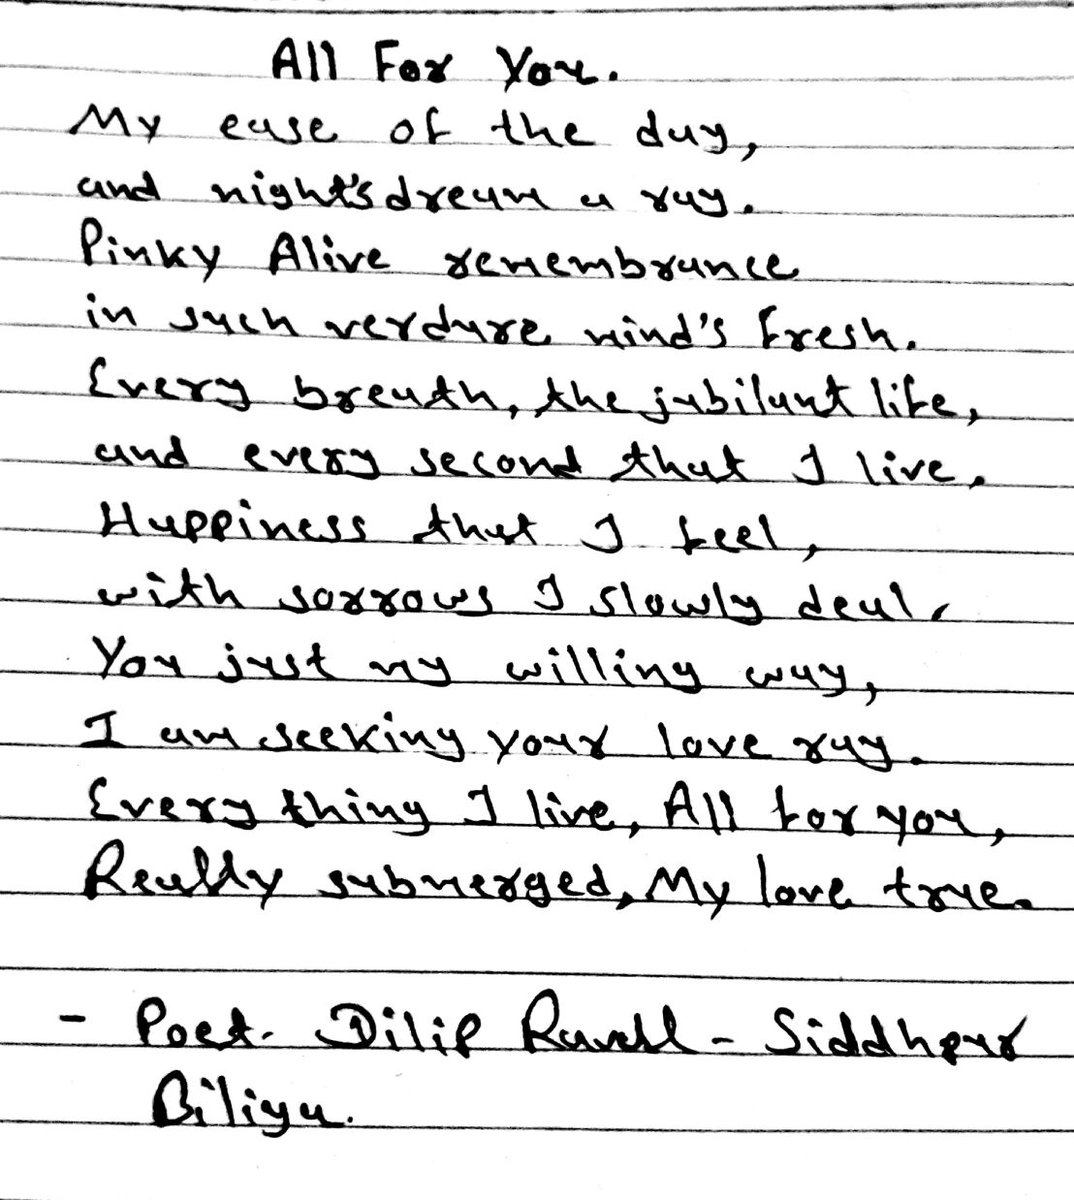 All For You.
My ease of the day,
and night's dream a ray.
Pinky Alive remembrance
in such verdure mind's fresh.
Every breath, the jubilant life,
and every second that I live.
Happiness that I feel,
with sorrows I slowly deal.
You just my willing way,
I am seeking your love ray.
Every thing I live, All for you,
Really submerged, My love true.
- Poet. Dilip Ravall - Siddhpur
Biliya.